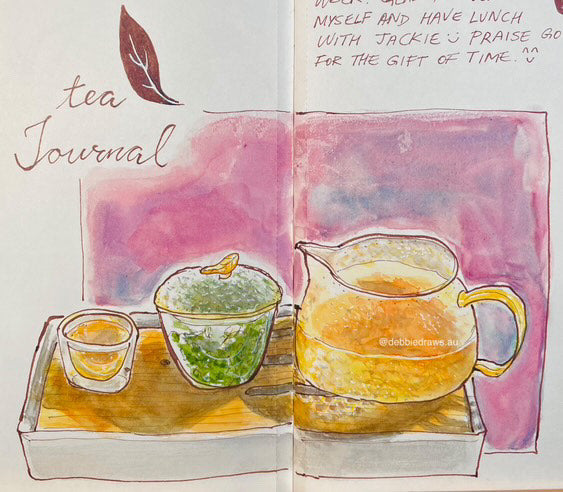 tea
Journal
MYSELF AND HAVE LUNCH
WITH JACKIE PRAISE GO
FOR THE GIFT OF TIME.^^
@debbiedraws.au